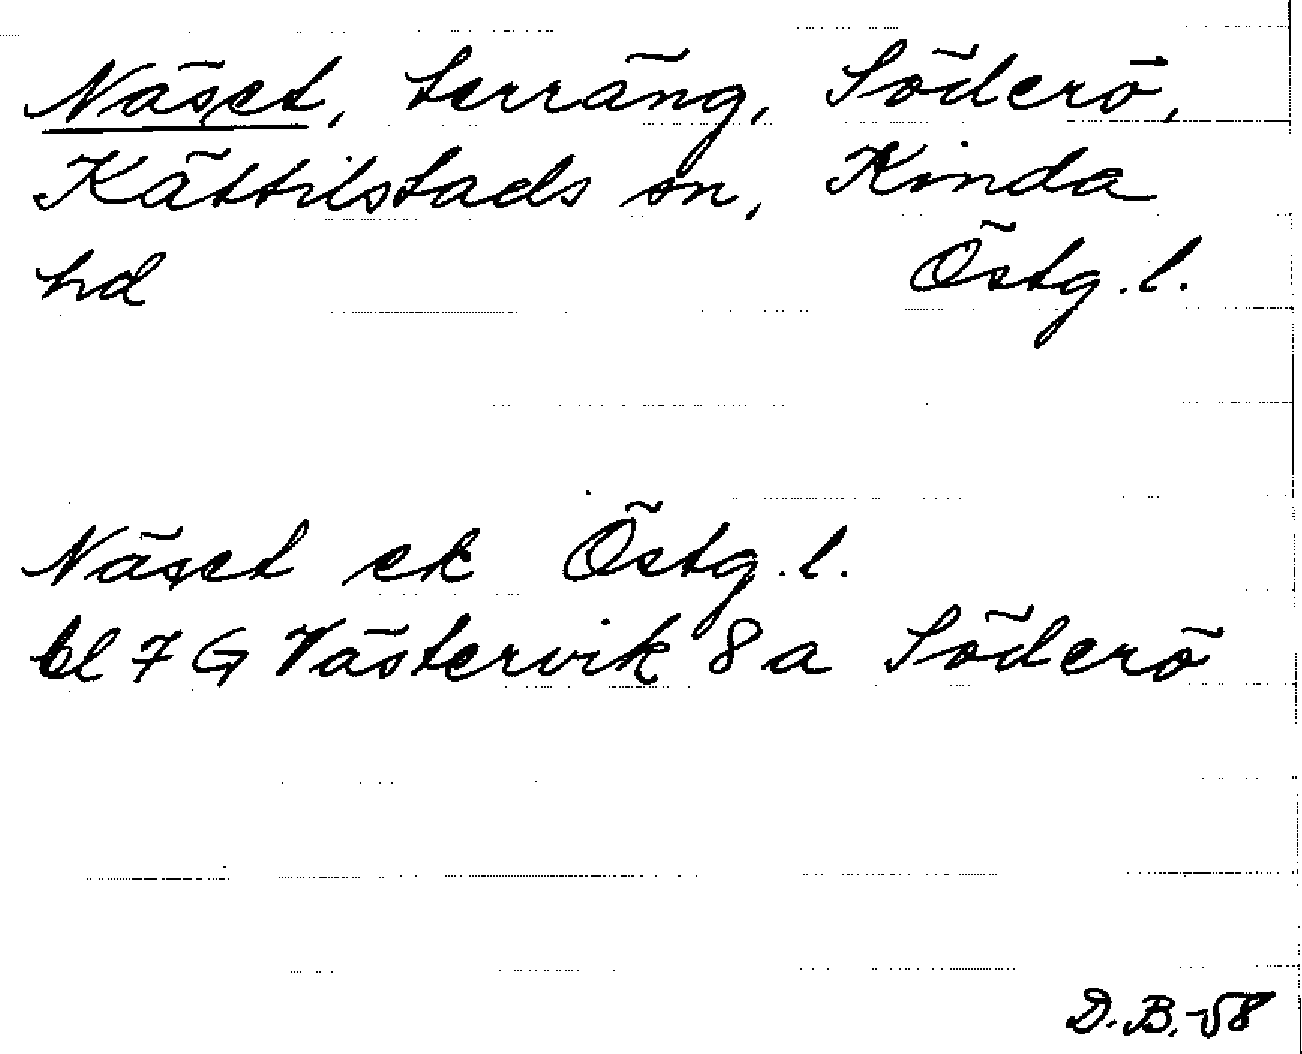 Näset, terräng, Söderö,
Kättilstads sn, Kinda
hd Östg.l.
Näset ek Östg.l.
bl 7 G Västervik 8 a Söderö
D.B.-58